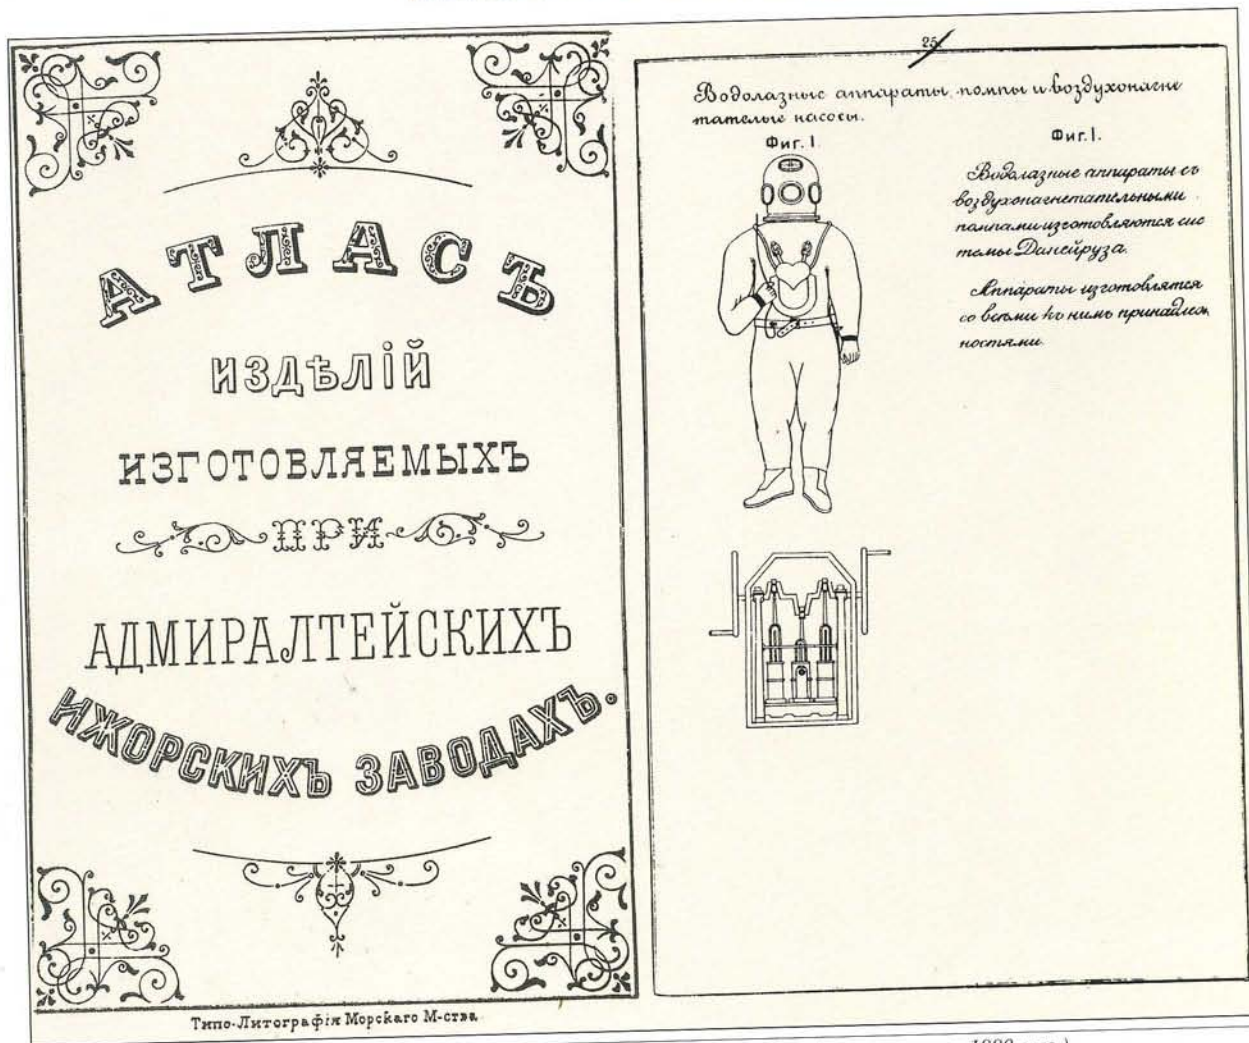 АТЛАСЪ
ИЗДѢЛІЙ
ИЗГОТОВЛЯЕМЫХЪ
ПРИ
АДМИРАЛТЕЙСКИХЪ
ИЖОРСКИХЪ ЗАВОДАХЪ.
Типо-Литографія Морскаго М-ства
25
Водолазные аппараты, помпы и воздухонагне
тателые насосы.
Фиг. 1.
Фиг. 1.
Водолазные аппараты съ
воздухонагнетательными
помпами изготовляются сис
темы Данейруза.
Аппараты изготовлятся
со всеми къ нимъ принадлеж
ностями.